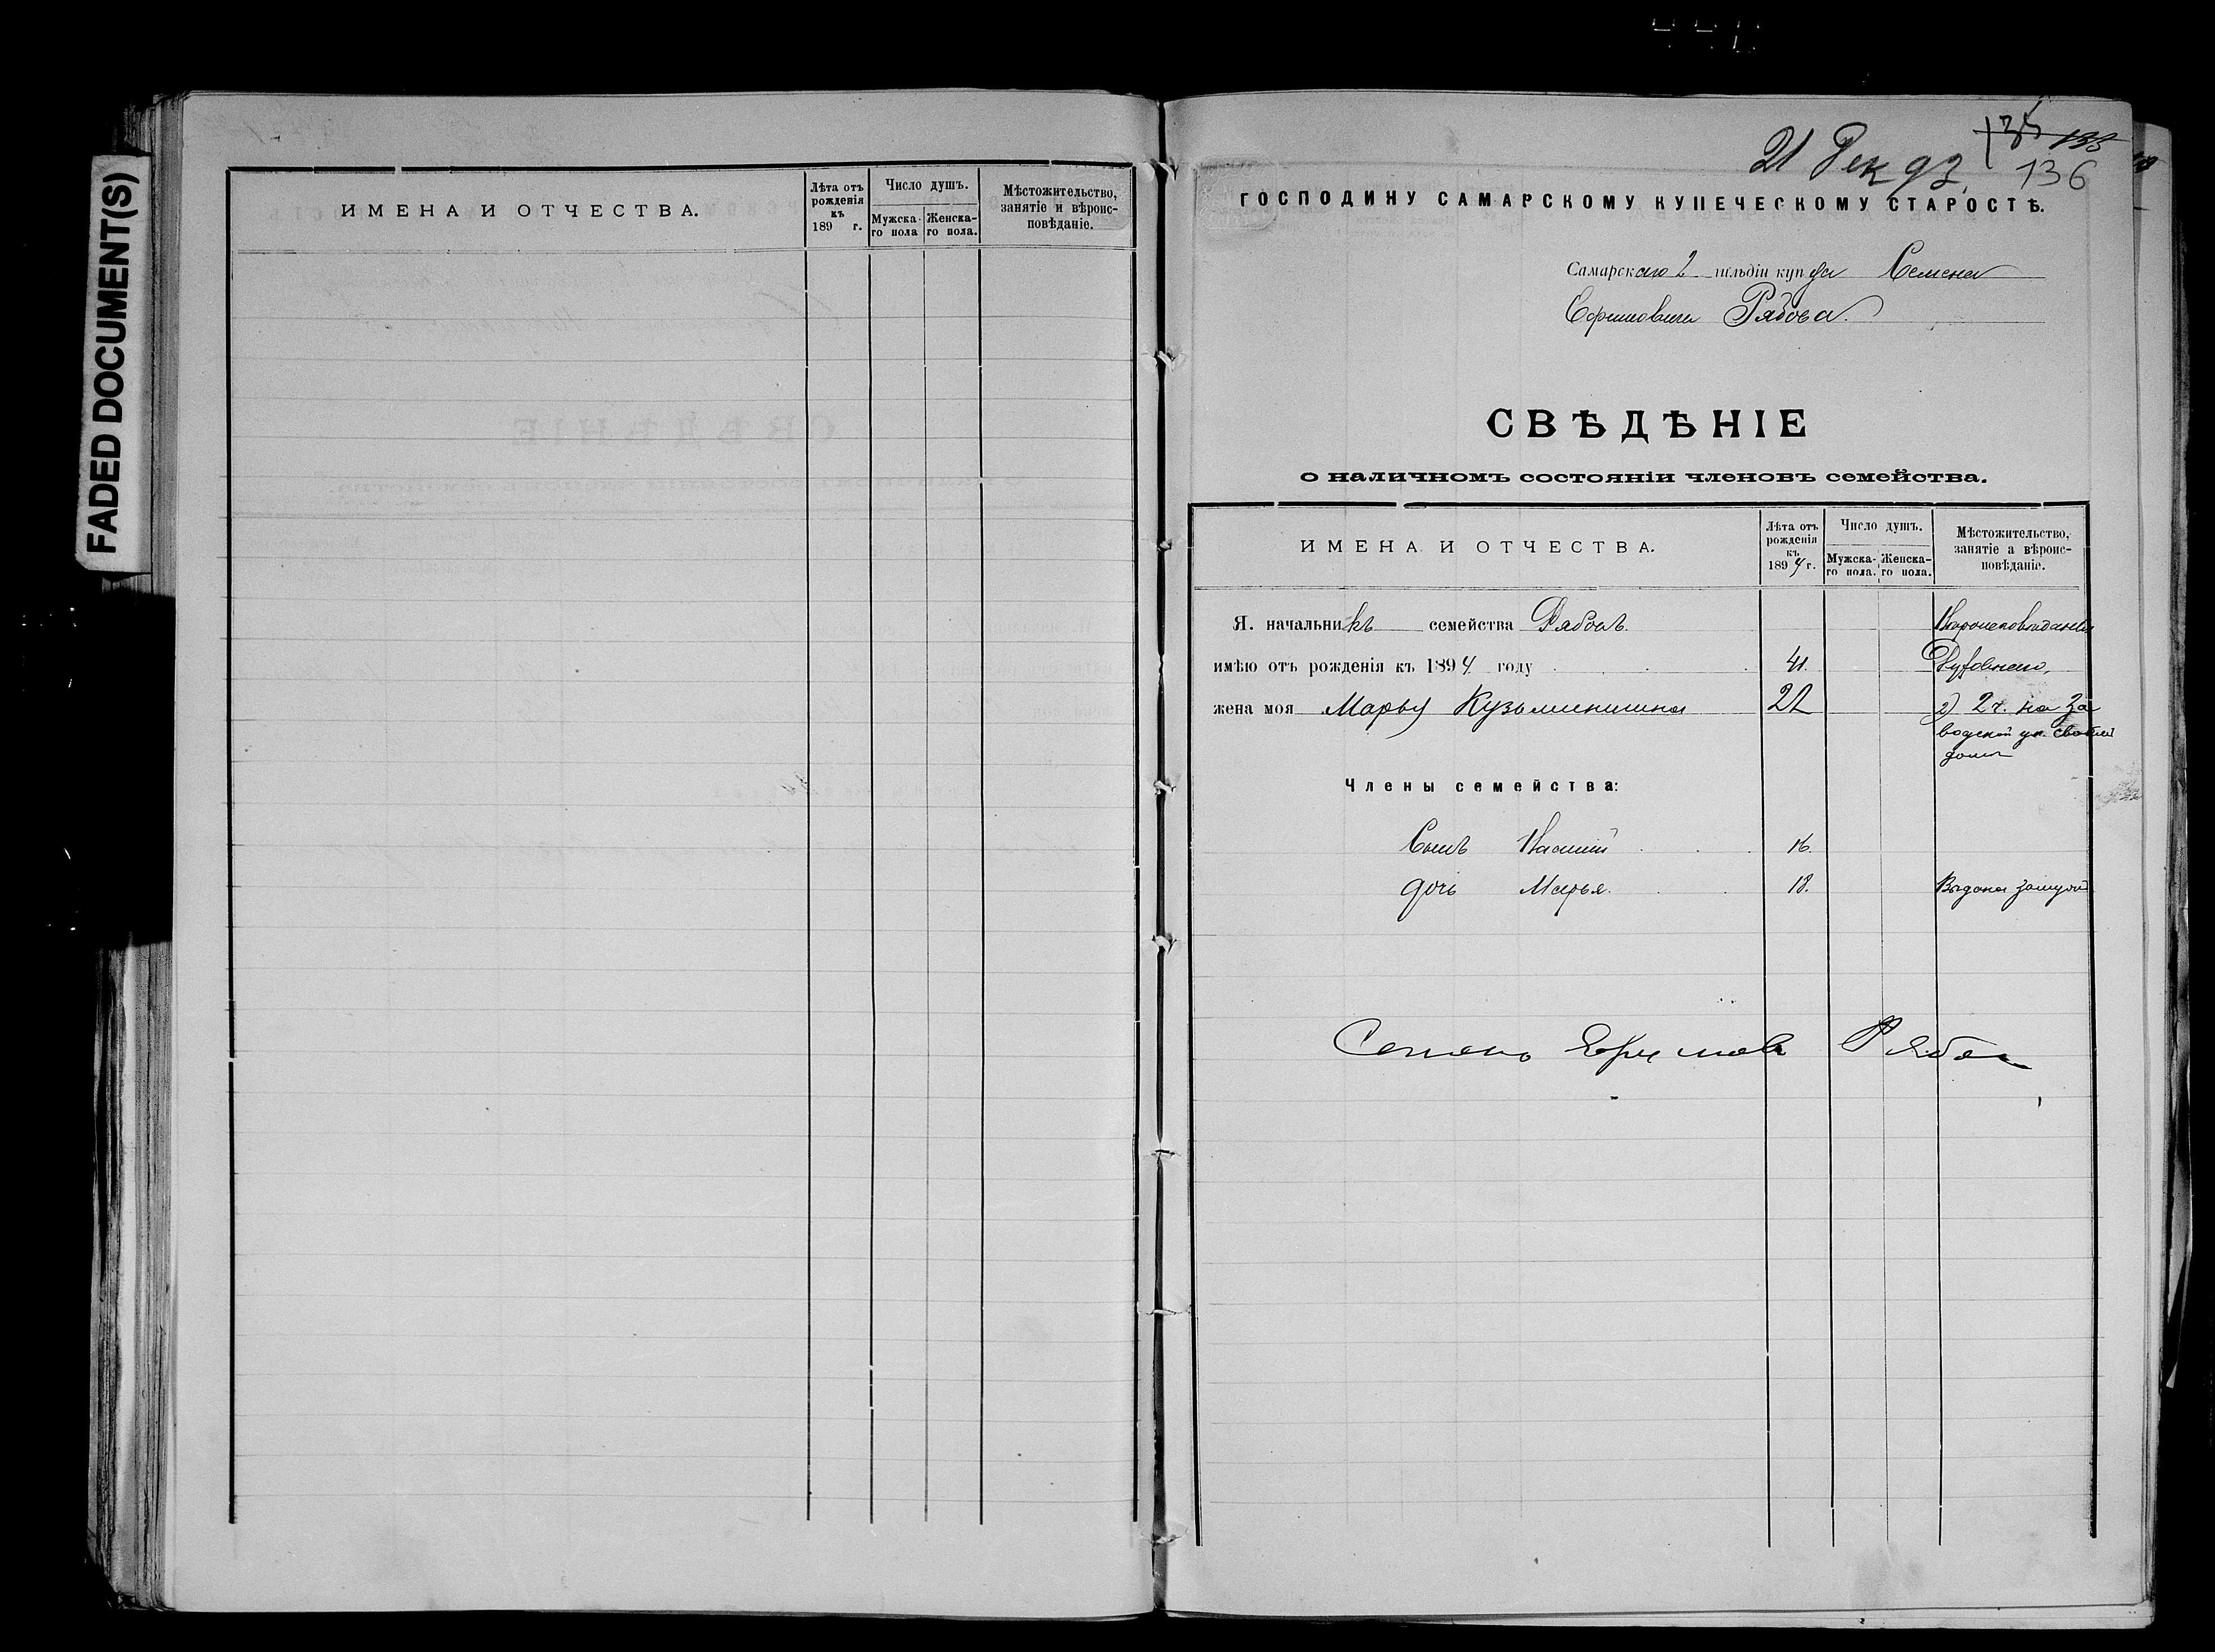 FADED DOCUMENT(S)
ИМЕНА И ОТЧЕСТВА.
Лѣта отъ рожденія къ 189 г.
Число душъ.
Мужска-го пола
Женска-го пола.
Мѣстожительство, занятіе и вѣроис-повѣданіе.
21 Дек 93.
135
136
ГОСПОДИНУ САМАРСКОМУ КУПЕЧЕСКОМУ СТАРОСТѢ.
Самарскаго 2 гильдіи купца Семена
Ефимовича Рябова.
СВѢДѢНІЕ
о наличномъ состояніи членовъ семейства.
ИМЕНА И ОТЧЕСТВА.
Лѣта отъ рожденія къ 1894 г.
Число душъ.
Мужска-го пола.
Женска-го пола.
Мѣстожительство, занятіе а вѣроис-повѣданіе.
Я. начальникъ семейства Рябовъ. Вѣроисповѣданія
имѣю отъ рожденія къ 1894 году 41.
жена моя Марья Кузьминишна 22 2) 2 ч. на За
водской ул. свой
домъ
Члены семейства:
Сынъ 16.
дочь Марья. 18. Выдана замужъ
Семенъ Ефимовъ Рябов